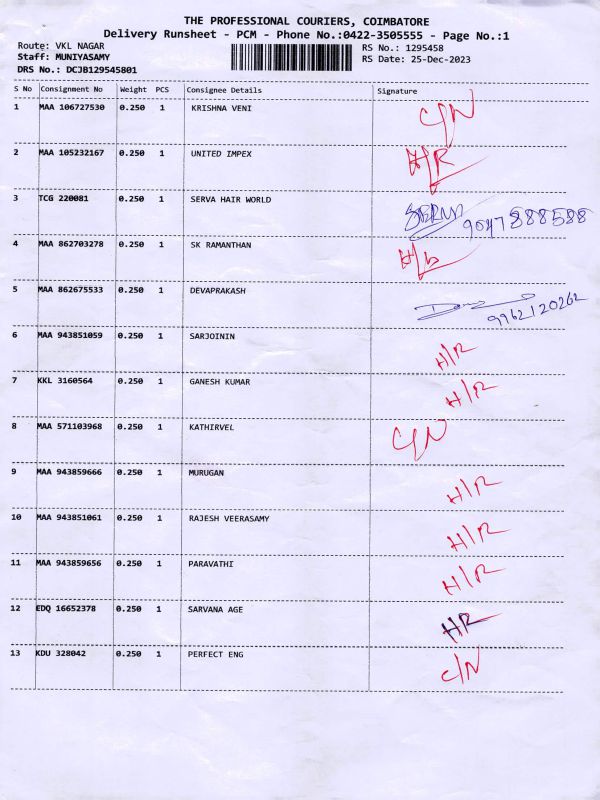 THE PROFESSIONAL COURIERS, COIMBATORE
Delivery Runsheet - PCM - Phone No.:0422-3505555 - Page No.:1
Route: VKL NAGAR RS No.: 1295458
Staff: MUNIYASAMY RS Date: 25-Dec-2023
DRS No.: DCJB129545801
S No Consignment No Weight PCS Consignee Details Signature
1 MAA 106727530 0.250 1 KRISHNA VENI C/N
2 MAA 105232167 0.250 1 UNITED IMPEX H/R
3 TCG 220081 0.250 1 SERVA HAIR WORLD 9047888588
4 MAA 862703278 0.250 1 SK RAMANTHAN
5 MAA 862675533 0.250 1 DEVAPRAKASH 9962120262
6 MAA 943851059 0.250 1 SARJOININ H/R
7 KKL 3160564 0.250 1 GANESH KUMAR H/R
8 MAA 571103968 0.250 1 KATHIRVEL C/N
9 MAA 943859666 0.250 1 MURUGAN H/R
10 MAA 943851061 0.250 1 RAJESH VEERASAMY H/R
11 MAA 943859656 0.250 1 PARAVATHI H/R
12 EDQ 16652378 0.250 1 SARVANA AGE H/R
13 KDU 328042 0.250 1 PERFECT ENG C/N